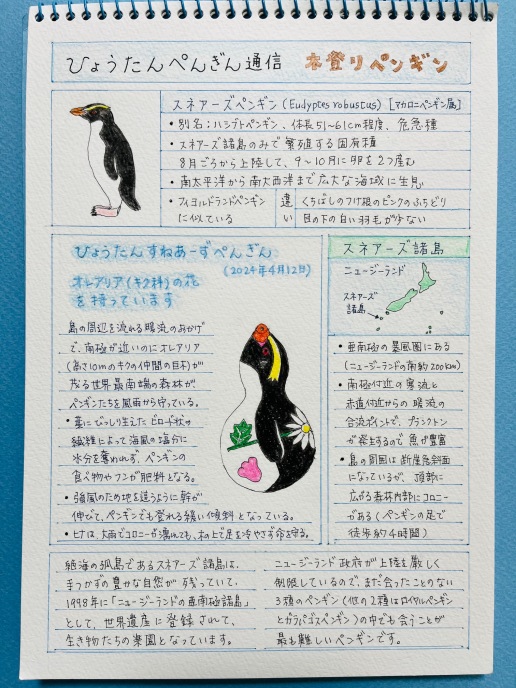 ひょうたんぺんぎん通信 木登りペンギン
スネアーズペンギン(Eudyptes robustus)[マカロニペンギン属]
・別名:ハシブトペンギン、体長51~61cm程度、危急種
・スネアーズ諸島のみで繁殖する固有種
8月ごろから上陸して、9~10月に卵を2つ産む
・南太平洋から南大西洋まで広大な海域に生息
・フィヨルドランドペンギン
に似ている
違い
くちばしのつけ根のピンクのふちどり
目の下の白い羽毛が少ない
ひょうたんすねあーずぺんぎん
(2024年4月12日)
オレアリア(キク科)の花
を持っています
島の周辺を流れる暖流のおかげ
で、南極が近いのにオレアリア
(高さ10mのキクの仲間の巨木)が
茂る世界最南端の森林が
ペンギンたちを風雨から守っている。
・葉にびっしり生えたビロード状の
繊維によって海風の塩分に
水分を奪われず、ペンギンの
食べ物やフンが肥料となる。
・強風のため地を這うように幹が
伸びて、ペンギンでも登れる緩い傾斜となっている。
・ヒナは、大雨でコロニーが濡れても、木の上で足を冷やさず命を守る。
スネアーズ諸島
ニュージーランド
スネアーズ
諸島
・亜南極の暴風圏にある
(ニュージーランドの南約200km)
・南極付近の寒流と
赤道付近からの暖流の
合流ポイントで、プランクトン
が発生するので魚が豊富
・島の周囲は断崖急斜面
になっているが、頂部に
広がる森林内部にコロニー
がある(ペンギンの足で
徒歩約4時間)
絶海の孤島であるスネアーズ諸島は、
手つかずの豊かな自然が残っていて、
1998年に「ニュージーランドの亜南極諸島」
として、世界遺産に登録されて、
生き物たちの楽園となっています。
ニュージーランド政府が上陸を厳しく
制限しているので、まだ会ったことのない
3種のペンギン(他の2種はロイヤルペンギン
とガラパゴスペンギン)の中でも会うことが
最も難しいペンギンです。